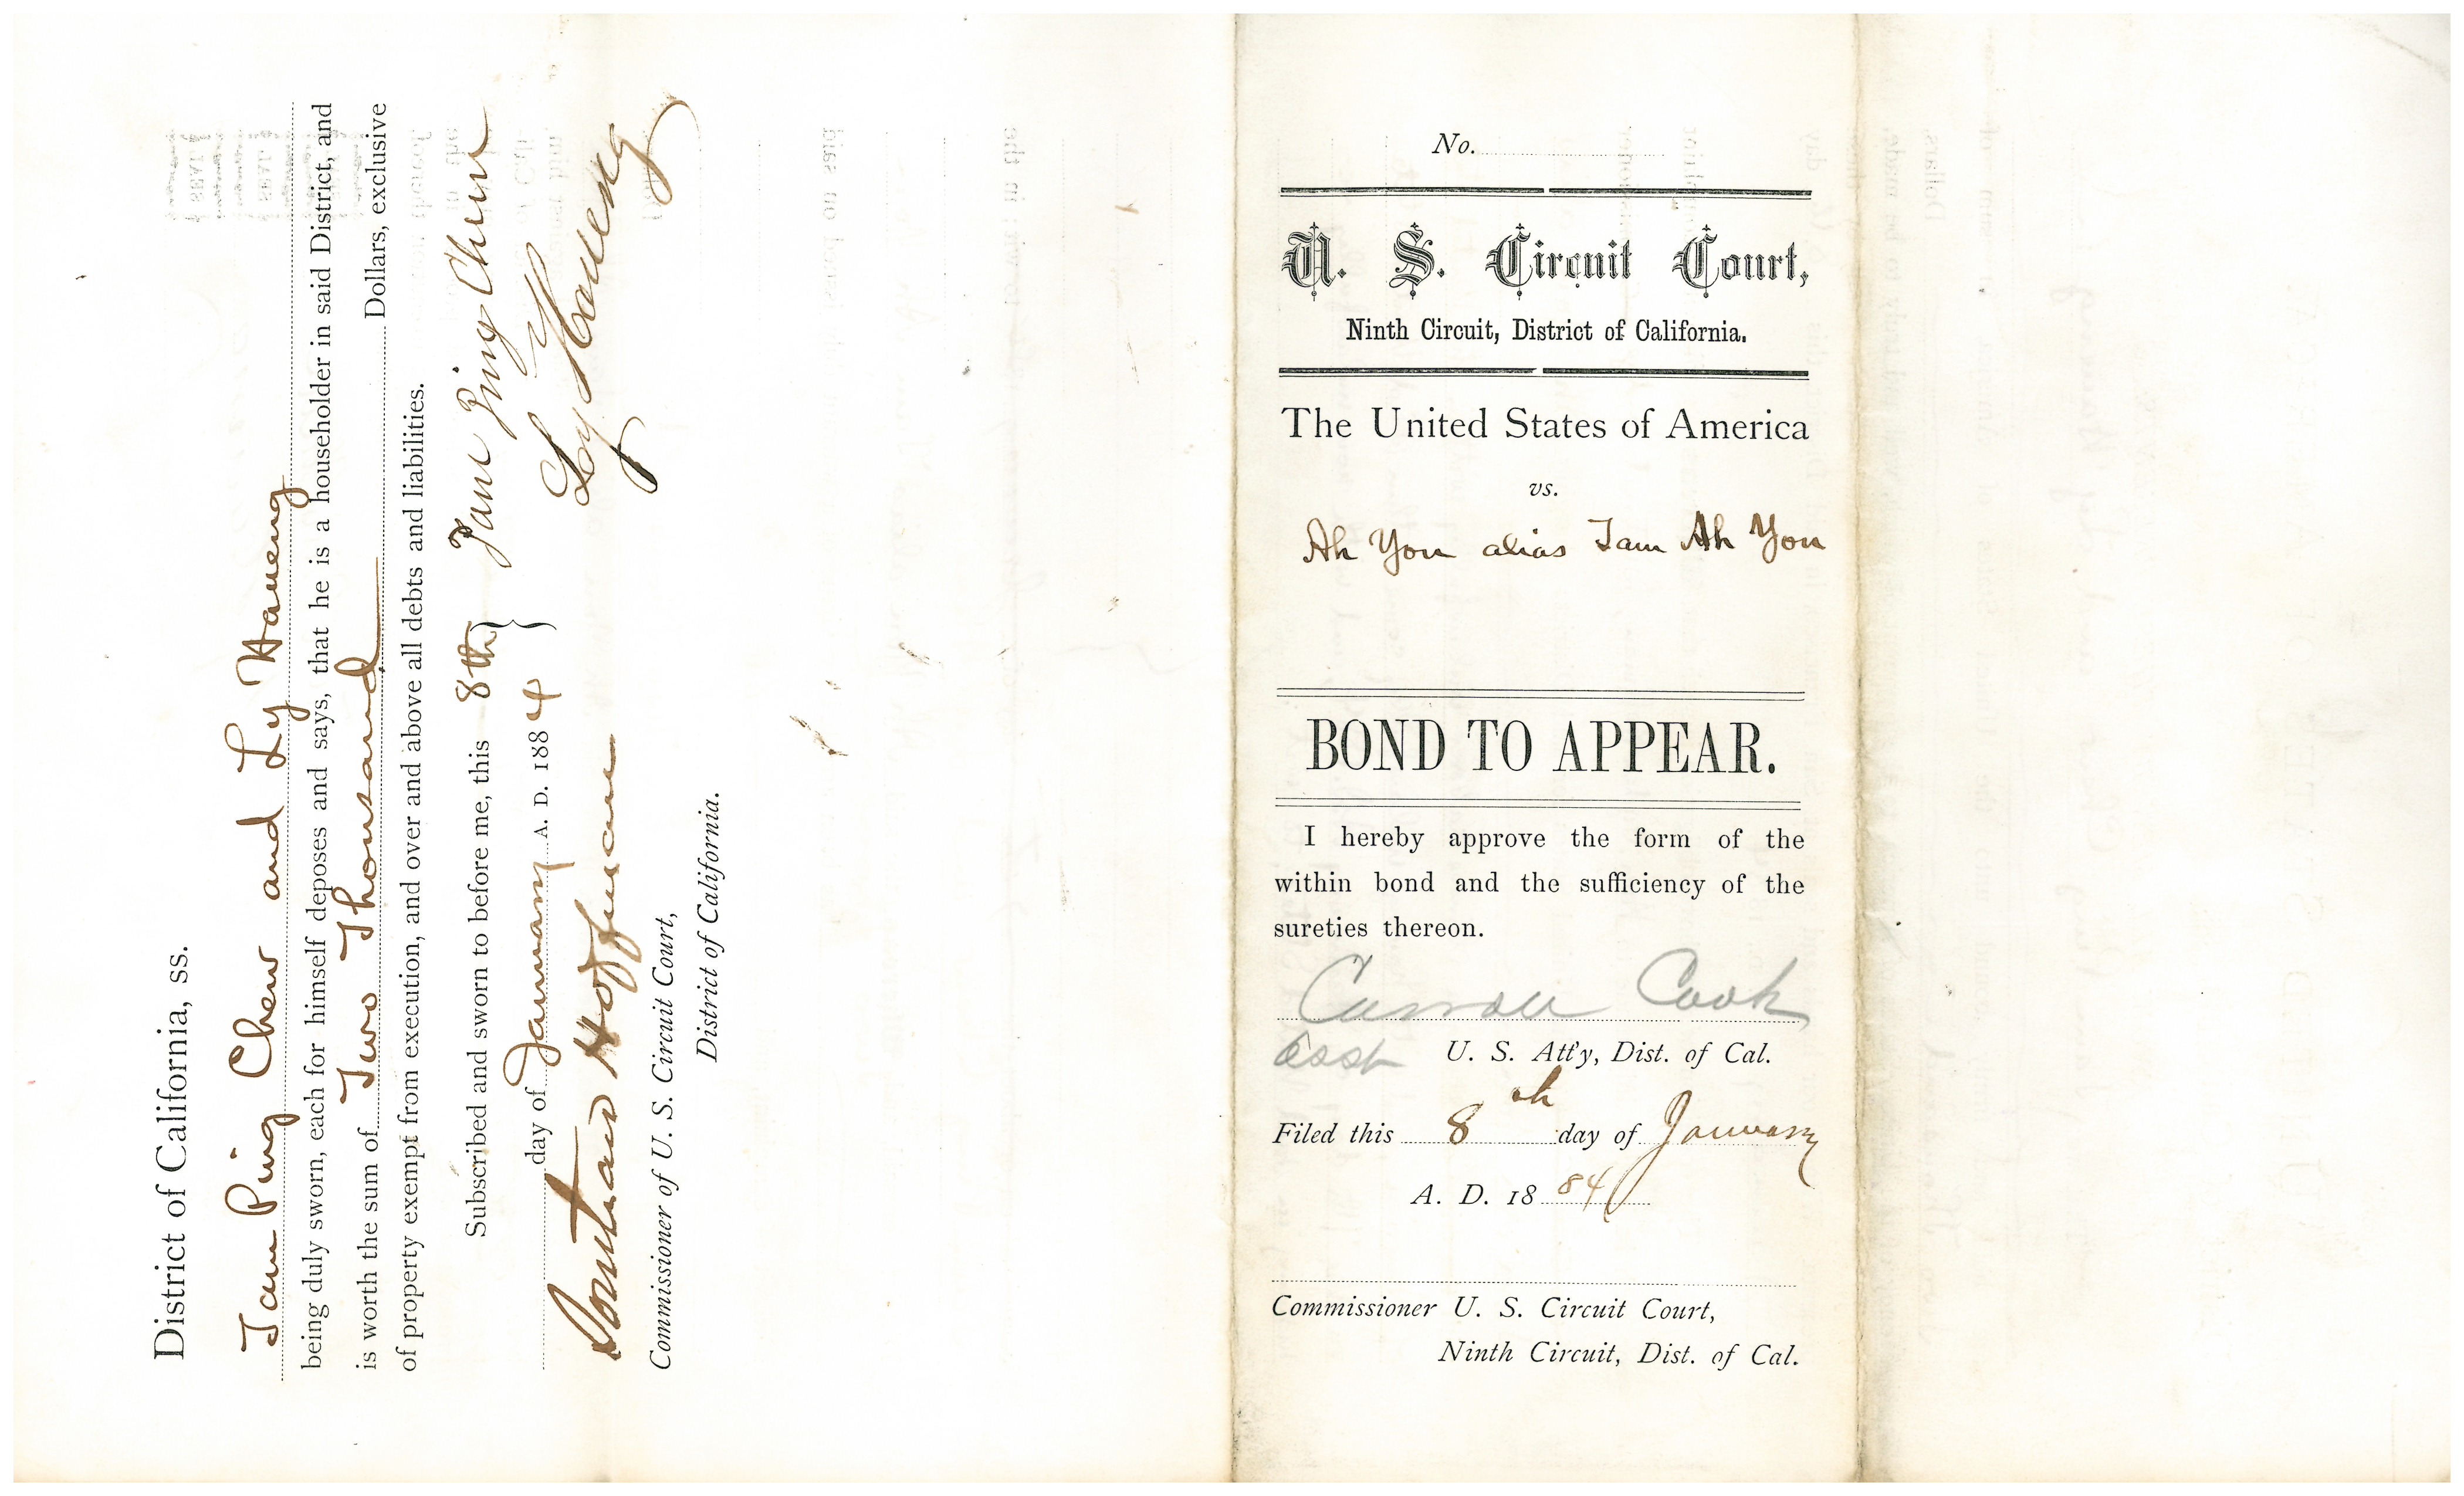 District of California, ss.
Tam Ping Chew and Ly Haueng
being duly sworn, each for himself deposes and says, that he is a householder in said District, and
is worth the sum of Two Thousand Dollars, exclusive
of property exempt from execution, and over and above all debts and liabilities.
Subscribed and sworn to before me, this 8th }
day of January A. D. 1884 }
Tam Ping Chew
Ly Haueng
Southard Hoffman
Commissioner of U. S. Circuit Court,
District of California.
No.
U. S. Circuit Court,
Ninth Circuit, District of California.
The United States of America
vs.
Ah You alias Tam Ah You
BOND TO APPEAR.
I hereby approve the form of the
within bond and the sufficiency of the
sureties thereon.
Carroll Cook
Asst U. S. Att'y, Dist. of Cal.
Filed this 8th day of January
A. D. 1884
Commissioner U. S. Circuit Court,
Ninth Circuit, Dist. of Cal.